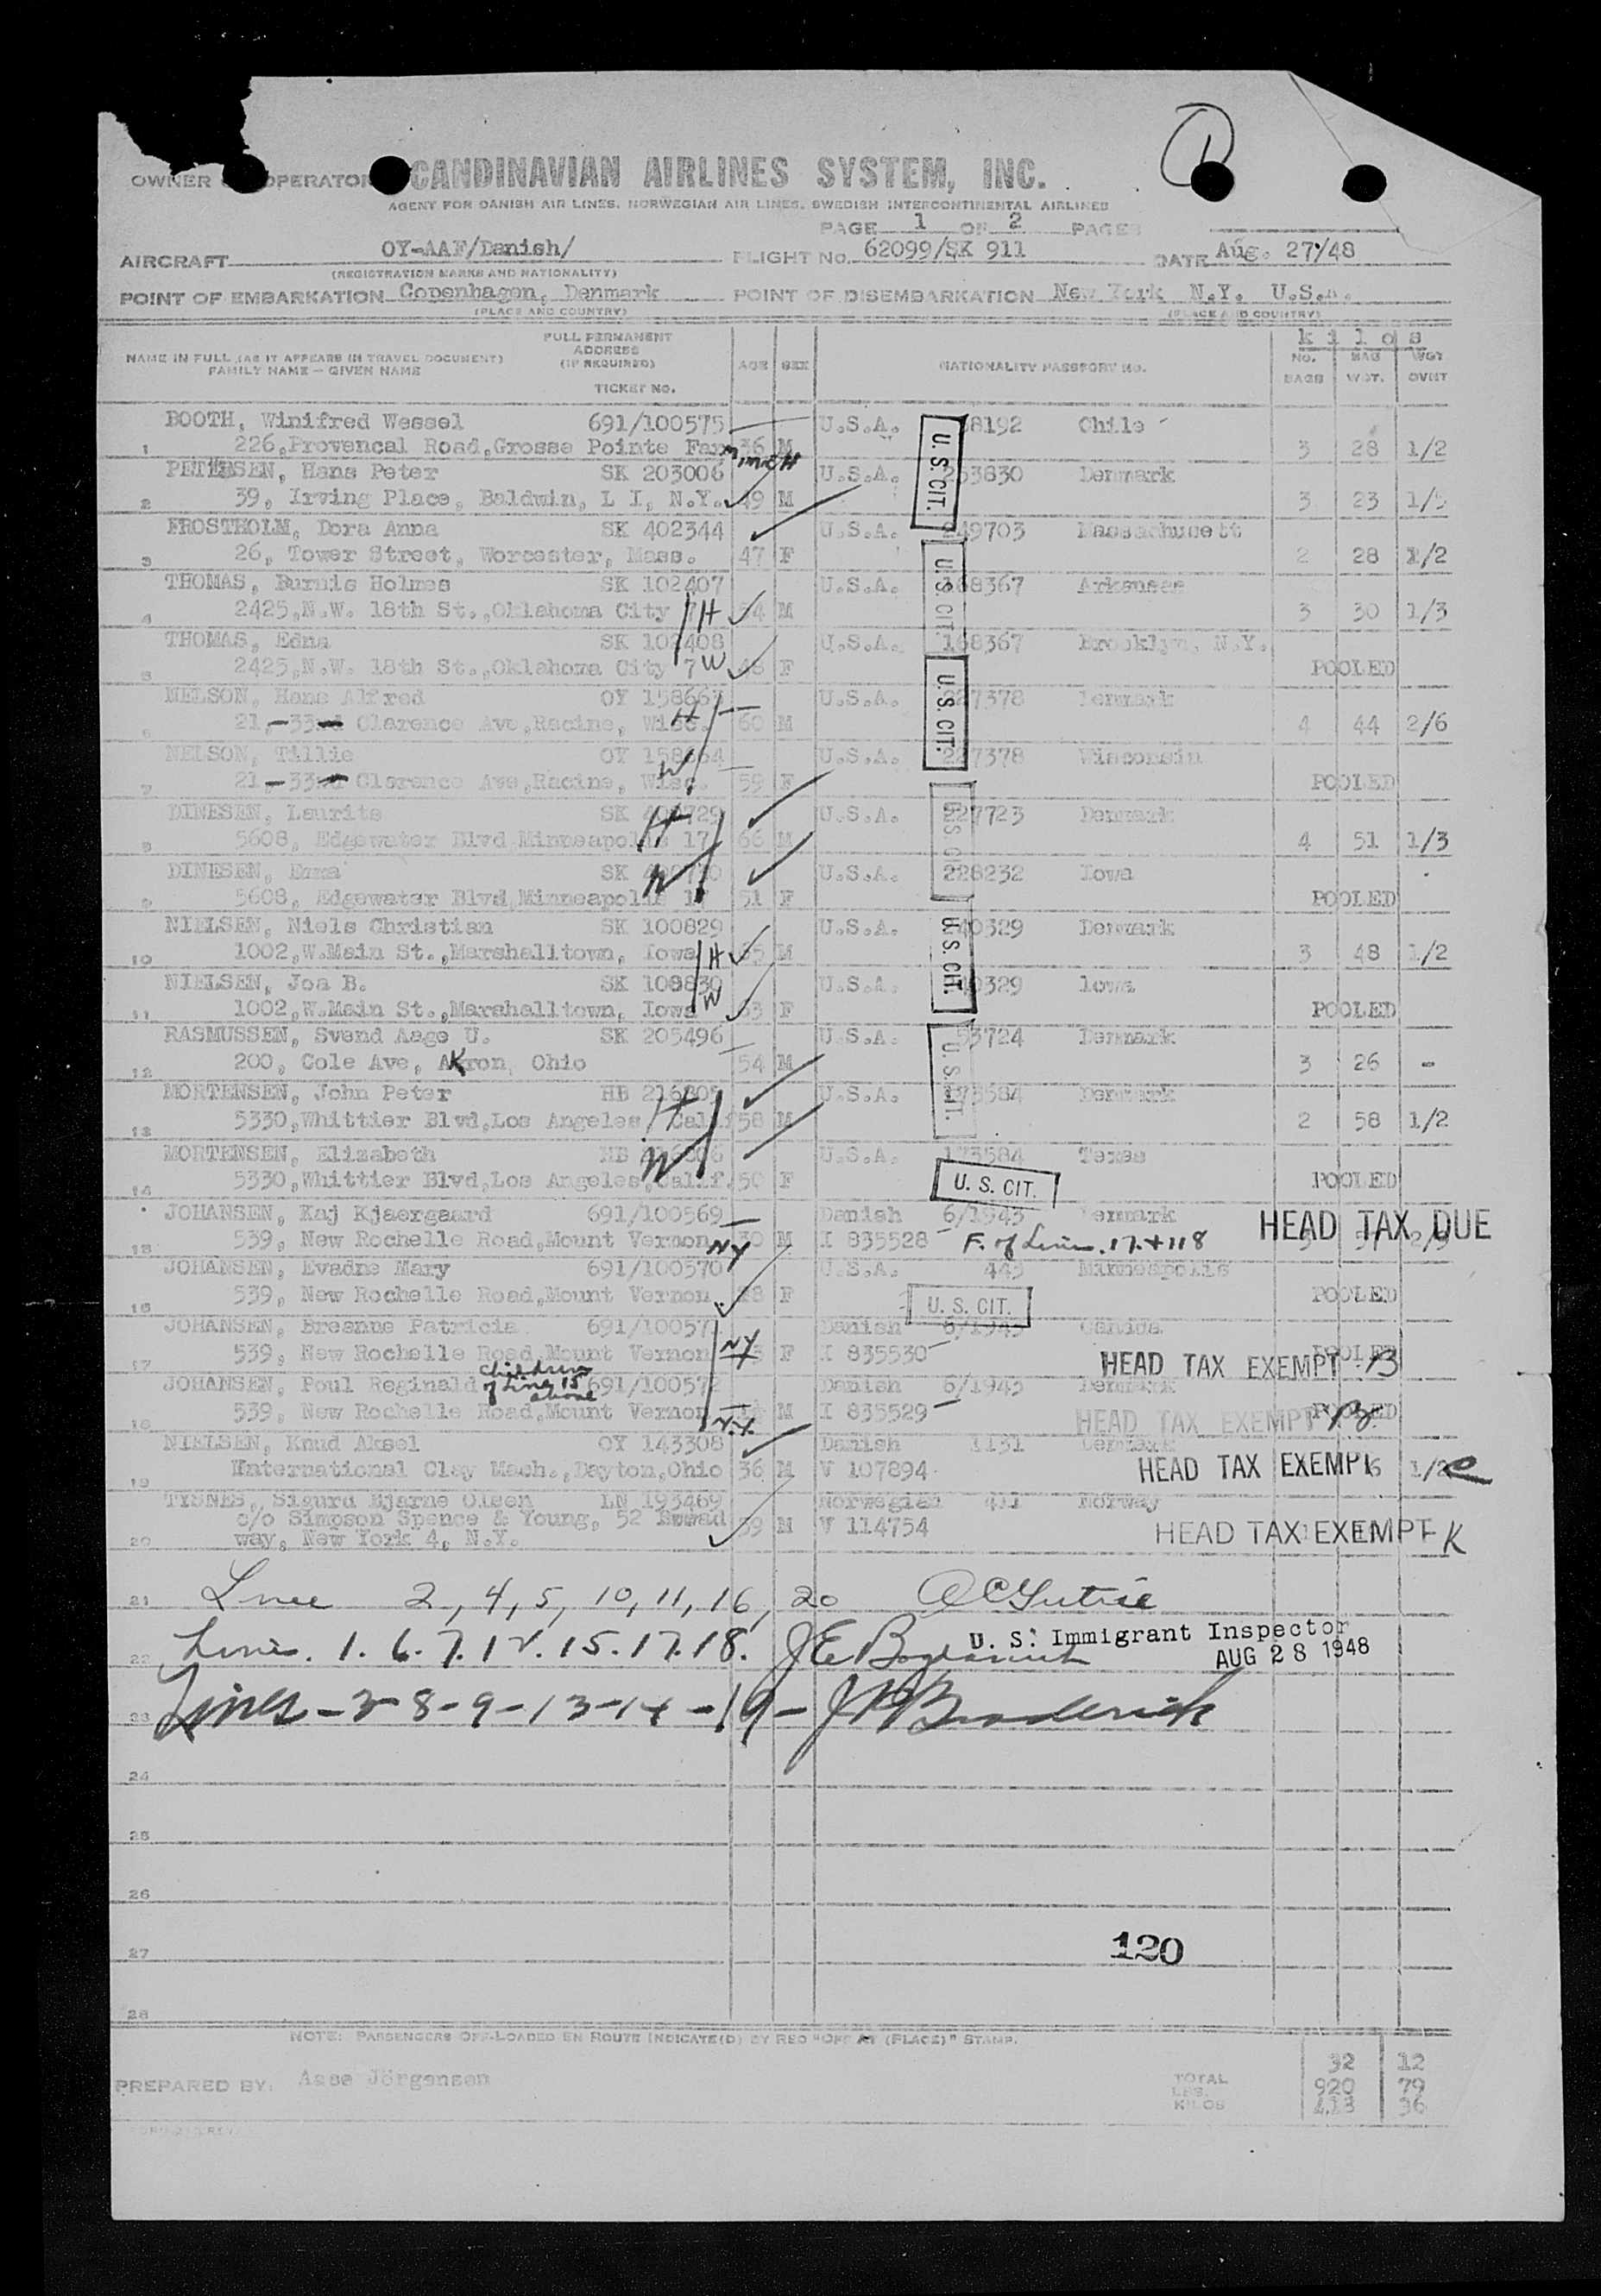 OWNER OPERATOR CANDINAVIAN AIRLINES SYSTEM, INC.
AGENT FOR DANISH AIR LINES, NORWEGIAN AIR LINES, SWEDISH INTERCONTINENTAL AIRLINES
PAGE 1 OF 2 PAGES
AIRCRAFT OY-AAF/Danish/ FLIGHT No. 62099/SK 911 DATE Aug. 27/48
(REGISTRATION MARKS AND NATIONALITY)
POINT OF EMBARKATION Copenhagen, Denmark POINT OF DISEMBARKATION New York N.Y. U.S.A.
(PLACE AND COUNTRY) (PLACE AND COUNTRY)
NAME IN FULL (AS IT APPEARS IN TRAVEL DOCUMENT)
FAMILY NAME — GIVEN NAME
FULL PERMANENT
ADDRESS
(IF REQUIRED)
TICKET NO.
AGE SEX NATIONALITY PASSPORT NO.
kilos
NO. BAG WGT
BAGS WGT. OVHT
BOOTH, Winifred Wessel 691/100575 U.S.A. 8192 Chile
1 226,Provencal Road,Grosse Pointe Far 36 M 3 28 1/2
PETERSEN, Hans Peter SK 203006 U.S.A. 3830 Denmark
2 39, Irving Place, Baldwin, L I, N.Y. 49 M 3 23 1/5
FROSTHOLM, Dora Anna SK 402344 U.S.A. 49703 Massachusett
3 26, Tower Street, Worcester, Mass. 47 F 2 28 1/2
THOMAS, Burnis Holmes SK 102407 U.S.A. 168367 Arkansas
4 2425,N.W. 18th St.,Oklahoma City 7 H 54 M 3 30 1/3
THOMAS, Edna SK 102408 U.S.A. 168367 Brooklyn, N.Y.
5 2425,N.W. 18th St.,Oklahoma City 7 W 48 F POOLED
NELSON, Hans Alfred OY 158663 U.S.A. 227378 Denmark
6 21-33 Clarence Ave,Racine, Wisc. H 60 M 4 44 2/6
NELSON, Tillie OY 158664 U.S.A. 227378 Wisconsin
7 21-33 Clarence Ave,Racine, Wisc. W 59 F POOLED
DINESEN, Laurits SK 400729 U.S.A. 227723 Denmark
8 5608, Edgewater Blvd Minneapolis 17 H 66 M 4 51 1/3
DINESEN, Emma SK 400730 U.S.A. 228232 Iowa
9 5608, Edgewater Blvd,Minneapolis 17 W 51 F POOLED
NIELSEN, Niels Christian SK 100829 U.S.A. 40329 Denmark
10 1002,W.Main St.,Marshalltown, Iowa H 65 M 3 48 1/2
NIELSEN, Joa B. SK 100830 U.S.A. 40329 Iowa
11 1002,W.Main St.,Marshalltown, Iowa W 63 F POOLED
RASMUSSEN, Svend Aage U. SK 205496 U.S.A. 53724 Denmark
12 200, Cole Ave, Akron, Ohio 54 M 3 26 -
MORTENSEN, John Peter HB 216805 U.S.A. 173584 Denmark
13 5330,Whittier Blvd,Los Angeles, Calif H 58 M 2 58 1/2
MORTENSEN, Elizabeth HB 216806 U.S.A. 173584 Texas
14 5330,Whittier Blvd,Los Angeles,Calif. W 50 F POOLED
U.S. CIT.
U.S. CIT.
U.S. CIT.
U.S. CIT.
U.S. CIT.
U.S. CIT.
U. S. CIT.
JOHANSEN, Kaj Kjaergaard 691/100569 Danish 6/1943 Denmark HEAD TAX DUE
15 539, New Rochelle Road,Mount Vernon NY 30 M I 835528 F. of Lines. 17.+118
JOHANSEN, Evadne Mary 691/100570 U.S.A. 443 Minneapolis
16 539, New Rochelle Road,Mount Vernon 28 F U. S. CIT. POOLED
JOHANSEN, Breanne Patricia 691/10057 Danish 6/1943 Canada
17 539, New Rochelle Road,Mount Vernon NY F I 835530 HEAD TAX EXEMPT B POOLED
Children of Line 15 above
JOHANSEN, Poul Reginald 691/100572 Danish 6/1943 Denmark
18 539, New Rochelle Road,Mount Vernon N.Y. M I 835529 HEAD TAX EXEMPT B POOLED
NIELSEN, Knud Aksel OY 143308 Danish 1131 Denmark
19 International Clay Mach.,Dayton,Ohio 36 M V 107894 HEAD TAX EXEMPT 1/2
TYSNES, Sigurd Bjarne Olsen LN 193469 Norwegian 411 Norway
c/o Simpson Spence & Young, 52 Broad 39 M V 114754 HEAD TAX EXEMPT K
20 way, New York 4, N.Y.
21 Line 2,4,5,10,11,16,20
22 Lines. 1. 6. 7. 12. 15. 17. 18.
U. S. Immigrant Inspector
AUG 28 1948
23 Lines -3-8-9-13-14-19- Broderick
24
25
26
27 120
28
NOTE: PASSENGERS OFF-LOADED EN ROUTE INDICATE(D) BY RED "OFF AT (PLACE)" STAMP.
32 12
PREPARED BY: Aase Jörgensen
TOTAL
LBS. 920 79
KILOS 413 36